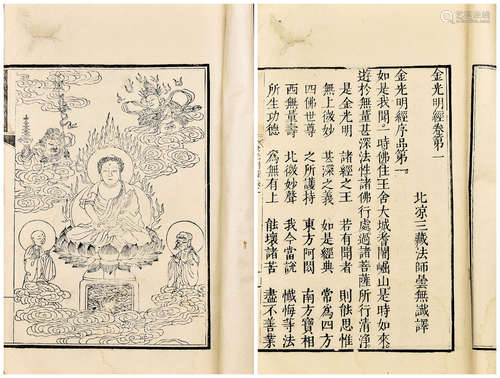 金光明經卷第一
北凉三藏法師曇無讖譯
金光明經序品第一
如是我聞一時佛住王舍大城耆闍崛山是時如來
遊於無量甚深法性諸佛行處過諸菩薩所行清淨
是金光明 諸經之王 若有聞者 則能思惟
無上微妙 甚深之義 如是經典 常為四方
四佛世尊 之所護持 東方阿閦 南方寶相
西無量壽 北微妙聲 我今當說 懺悔等法
所生功德 為無有上 能壞諸苦 盡不善業